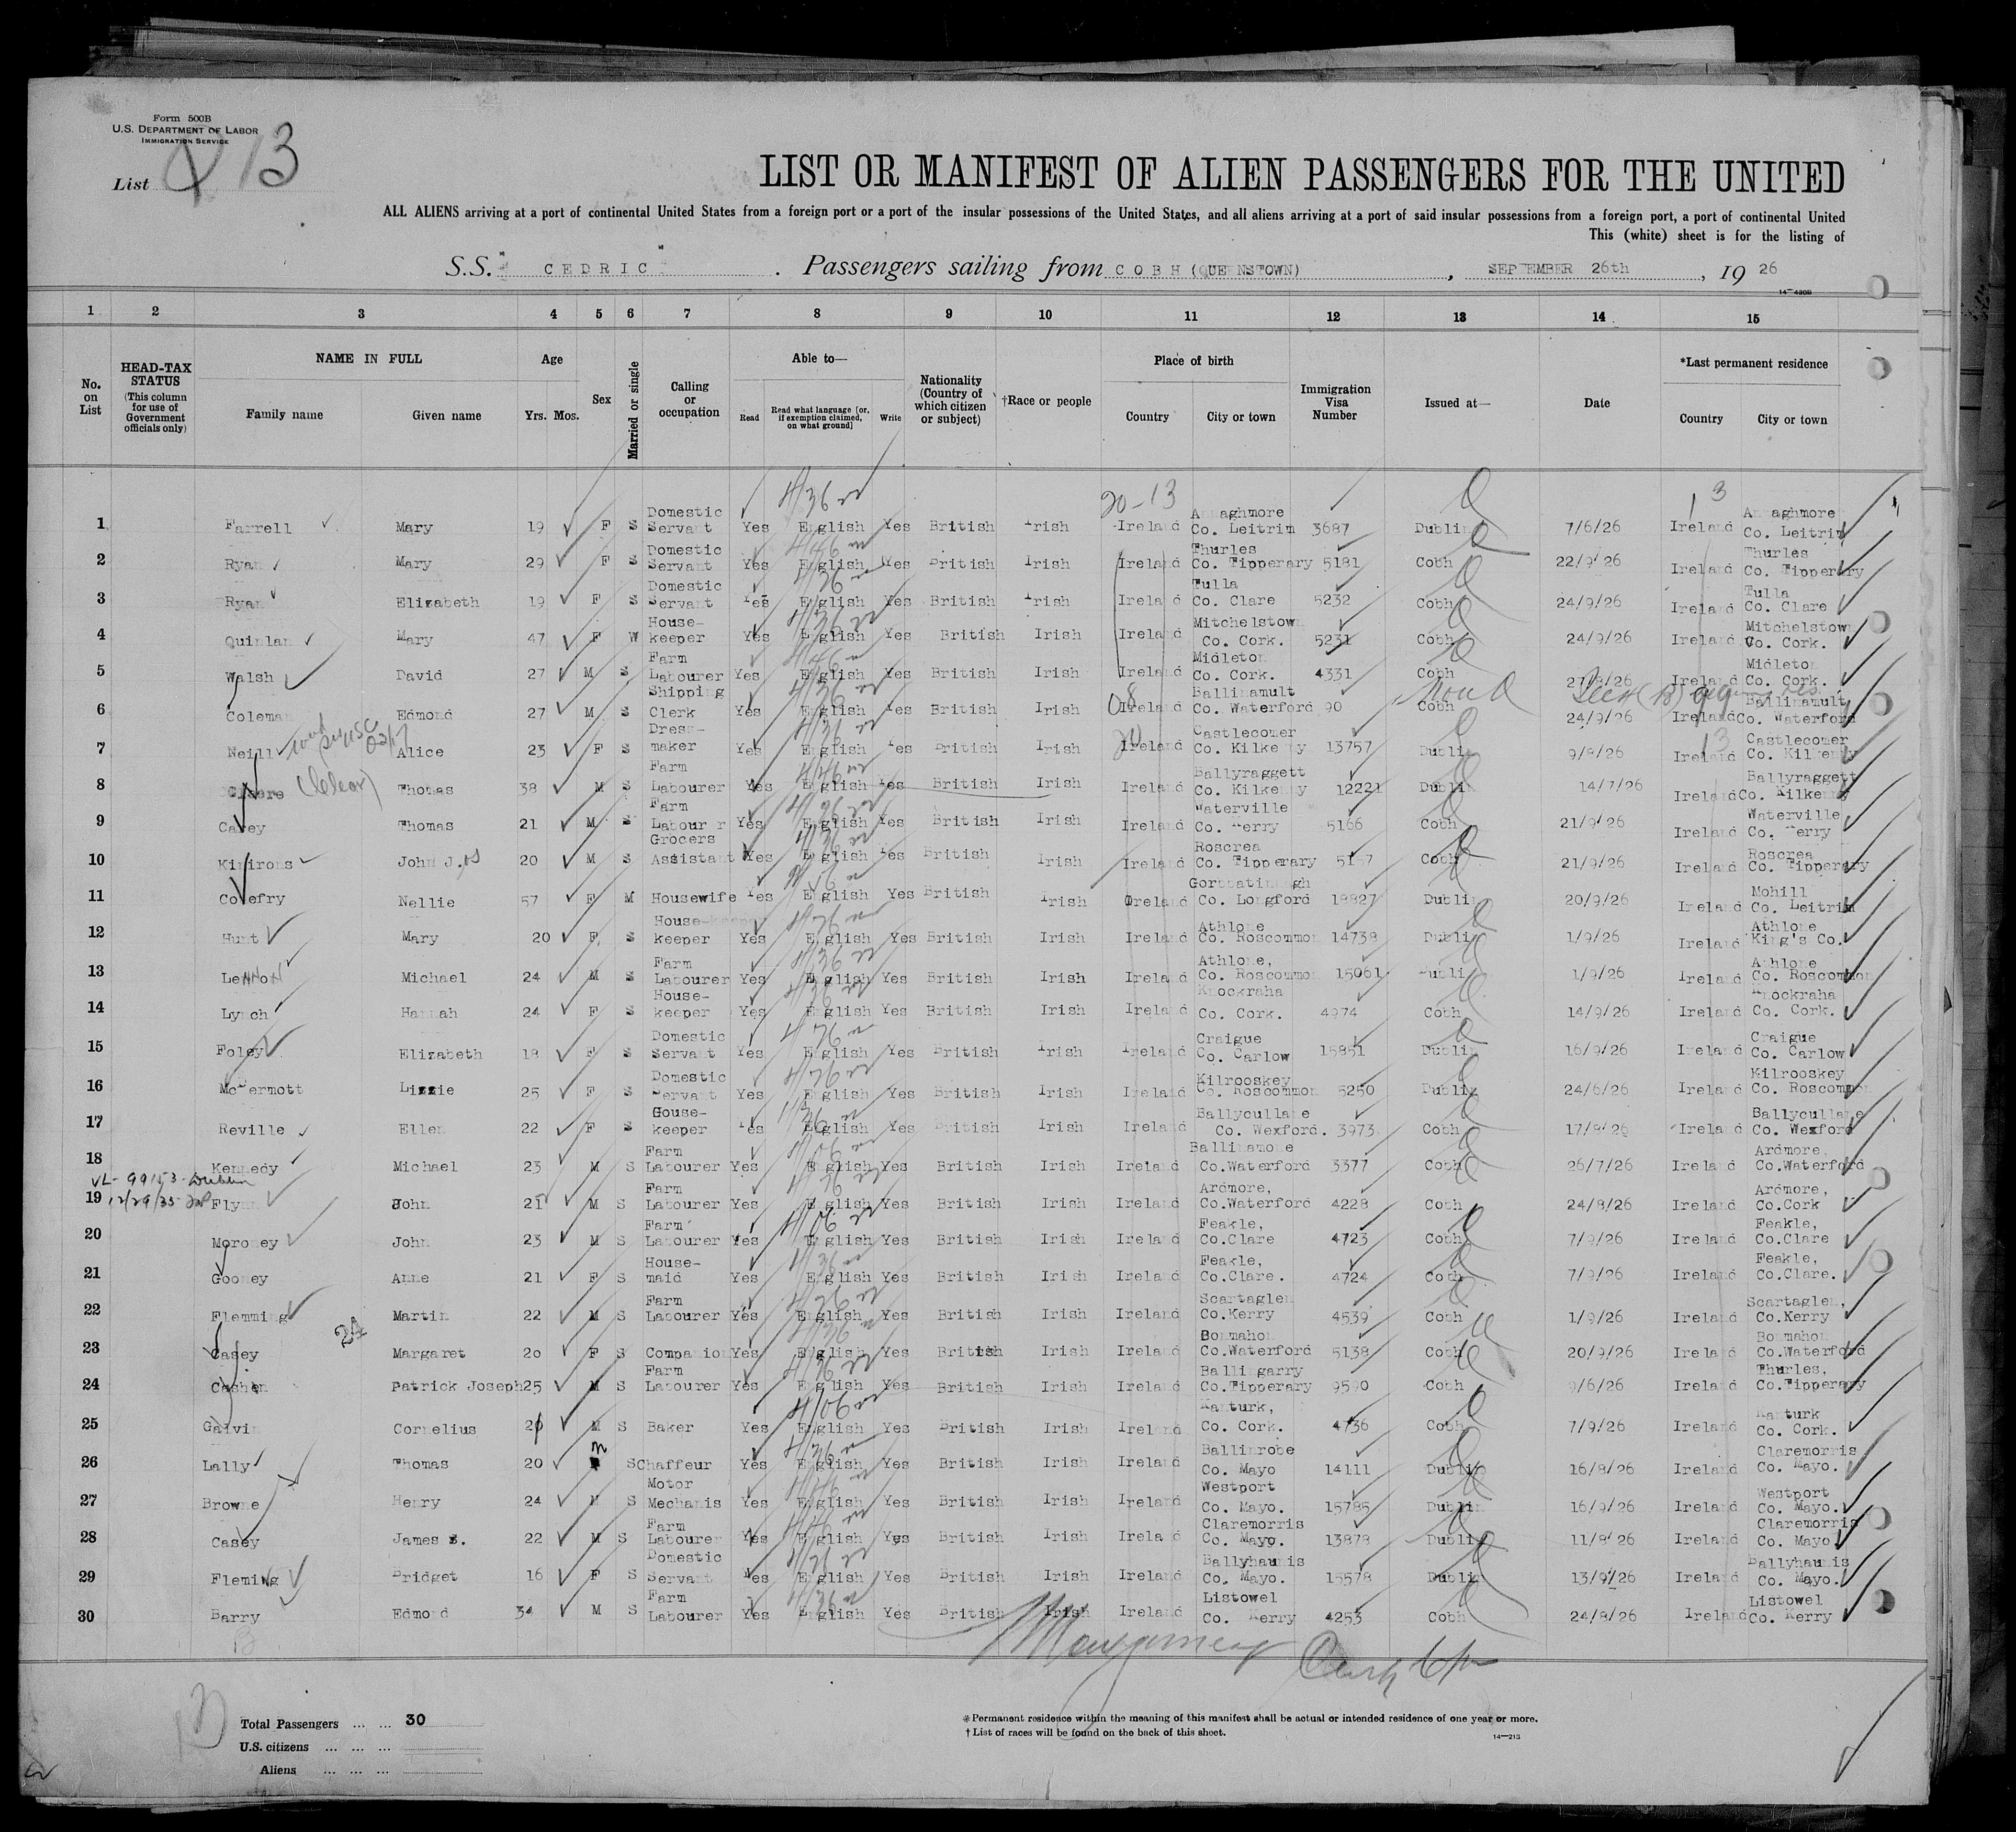 Form 500B
U.S. DEPARTMENT OF LABOR
IMMIGRATION SERVICE
List 13
LIST OR MANIFEST OF ALIEN PASSENGERS FOR THE UNITED
ALL ALIENS arriving at a port of continental United States from a foreign port or a port of the insular possessions of the United States, and all aliens arriving at a port of said insular possessions from a foreign port, a port of continental United
This (white) sheet is for the listing of
S.S. " CEDRIC " . Passengers sailing from COBH (QUEENSTOWN) , SEPTEMBER 26th , 19 26
14—430B
1 2 3 4 5 6 7 8 9 10 11 12 13 14 15
No. on List
HEAD-TAX STATUS (This column for use of Government officials only)
NAME IN FULL
Family name Given name
Age Yrs. Mos.
Sex
Married or single
Calling or occupation
Able to—
Read Read what language [or, if exemption claimed, on what ground] Write
Nationality (Country of which citizen or subject)
†Race or people
Place of birth
Country City or town
Immigration Visa Number
Issued at—
Date
*Last permanent residence
Country City or town
20-13 3
1 Farrell Mary 19 F S Domestic Servant Yes English Yes British Irish Ireland Annaghmore Co. Leitrim 3687 Dublin 7/6/26 Ireland Annaghmore Co. Leitrim
2 Ryan Mary 29 F S Domestic Servant Yes English Yes British Irish Ireland Thurles Co. Tipperary 5181 Cobh 22/9/26 Ireland Thurles Co. Tipperary
3 Ryan Elizabeth 19 F S Domestic Servant Yes English Yes British Irish Ireland Tulla Co. Clare 5232 Cobh 24/9/26 Ireland Tulla Co. Clare
4 Quinlan Mary 47 F W House-keeper Yes English Yes British Irish Ireland Mitchelstown Co. Cork. 5231 Cobh 24/9/26 Ireland Mitchelstown Co. Cork.
5 Walsh David 27 M S Farm Labourer Yes English Yes British Irish Ireland Midleton Co. Cork. 4331 Cobh Ireland Midleton Co. Cork.
6 Coleman Edmond 27 M S Shipping Clerk Yes English Yes British Irish Ireland Ballinamult Co. Waterford 90 Cobh 24/9/26 Ireland Ballinamult Co. Waterford
7 Neill Alice 23 F S Dress-maker Yes English Yes British Irish Ireland Castlecomer Co. Kilkenny 13757 Dublin 9/8/26 Ireland Castlecomer Co. Kilkenny
8 (Cleere) Thomas 38 M S Farm Labourer Yes English Yes British Irish Ireland Ballyraggett Co. Kilkenny 12221 Dublin 14/7/26 Ireland Ballyraggett Co. Kilkenny
9 Casey Thomas 21 M S Farm Labourer Yes English Yes British Irish Ireland Waterville Co. Kerry 5166 Cobh 21/9/26 Ireland Waterville Co. Kerry
10 Kinirons John J. 20 M S Grocers Assistant Yes English Yes British Irish Ireland Roscrea Co. Tipperary 5157 Cobh 21/9/26 Ireland Roscrea Co. Tipperary
11 Nellie 57 F M Housewife Yes English Yes British Irish Ireland Co. Longford 18827 Dublin 20/9/26 Ireland Mohill Co. Leitrim
12 Hunt Mary 20 F S House-keeper Yes English Yes British Irish Ireland Athlone Co. Roscommon 14738 Dublin 1/9/26 Ireland Athlone King's Co.
13 Lennon Michael 24 M S Farm Labourer Yes English Yes British Irish Ireland Athlone, Co. Roscommon 15061 Dublin 1/9/26 Ireland Athlone Co. Roscommon
14 Lynch Hannah 24 F S House-keeper Yes English Yes British Irish Ireland Knockraha Co. Cork. 4974 Cobh 14/9/26 Ireland Knockraha Co. Cork.
15 Foley Elizabeth 18 F S Domestic Servant Yes English Yes British Irish Ireland Craigue Co. Carlow 15851 Dublin 16/9/26 Ireland Craigue Co. Carlow
16 McDermott Lizzie 25 F S Domestic Servant Yes English Yes British Irish Ireland Kilrooskey Co. Roscommon 5250 Dublin 24/6/26 Ireland Kilrooskey Co. Roscommon
17 Reville Ellen 22 F S House-keeper Yes English Yes British Irish Ireland Ballycullane Co. Wexford. 3973 Cobh 17/8/26 Ireland Ballycullane Co. Wexford
18 Kennedy Michael 23 M S Farm Labourer Yes English Yes British Irish Ireland Ballinamone Co.Waterford 3377 Cobh 26/7/26 Ireland Ardmore, Co.Waterford
VL- 99153- Dublin
12/29/35
19 Flynn John 21 M S Farm Labourer Yes English Yes British Irish Ireland Ardmore, Co.Waterford 4228 Cobh 24/8/26 Ireland Ardmore, Co.Cork
20 Moroney John 23 M S Farm Labourer Yes English Yes British Irish Ireland Feakle, Co.Clare 4723 Cobh 7/9/26 Ireland Feakle, Co.Clare
21 Gooney Anne 21 F S House-maid Yes English Yes British Irish Ireland Feakle, Co.Clare. 4724 Cobh 7/9/26 Ireland Feakle, Co.Clare.
22 Flemming Martin 22 M S Farm Labourer Yes English Yes British Irish Ireland Scartaglen Co.Kerry 4539 Cobh 1/9/26 Ireland Scartaglen, Co.Kerry
24
23 Casey Margaret 20 F S Companion Yes English Yes British Irish Ireland Bonmahon Co.Waterford 5138 Cobh 20/9/26 Ireland Bonmahon Co.Waterford
24 Cashen Patrick Joseph 25 M S Farm Labourer Yes English Yes British Irish Ireland Ballingarry Co.Tipperary 9590 Cobh 9/6/26 Ireland Thurles, Co.Tipperary
25 Galvin Cornelius 20 M S Baker Yes English Yes British Irish Ireland Kanturk, Co. Cork. 4736 Cobh 7/9/26 Ireland Kanturk Co. Cork.
26 Lally Thomas 20 M S Chaffeur Yes English Yes British Irish Ireland Ballinrobe Co. Mayo 14111 Dublin 16/8/26 Ireland Claremorris Co. Mayo.
27 Browne Henry 24 M S Motor Mechanis Yes English Yes British Irish Ireland Westport Co. Mayo. 15785 Dublin 16/9/26 Ireland Westport Co. Mayo.
28 Casey James 22 M S Farm Labourer Yes English Yes British Irish Ireland Claremorris Co. Mayo. 13878 Dublin 11/8/26 Ireland Claremorris Co. Mayo
29 Fleming Bridget 16 F S Domestic Servant Yes English Yes British Irish Ireland Ballyhaunis Co. Mayo. 15578 Dublin 13/9/26 Ireland Ballyhaunis Co. Mayo.
30 Barry Edmond 34 M S Farm Labourer Yes English Yes British Irish Ireland Listowel Co. Kerry 4253 Cobh 24/8/26 Ireland Listowel Co. Kerry
Total Passengers ... ... 30
U.S. citizens ... ... ...
Aliens ... ... ...
*Permanent residence within the meaning of this manifest shall be actual or intended residence of one year or more.
†List of races will be found on the back of this sheet.
14—213